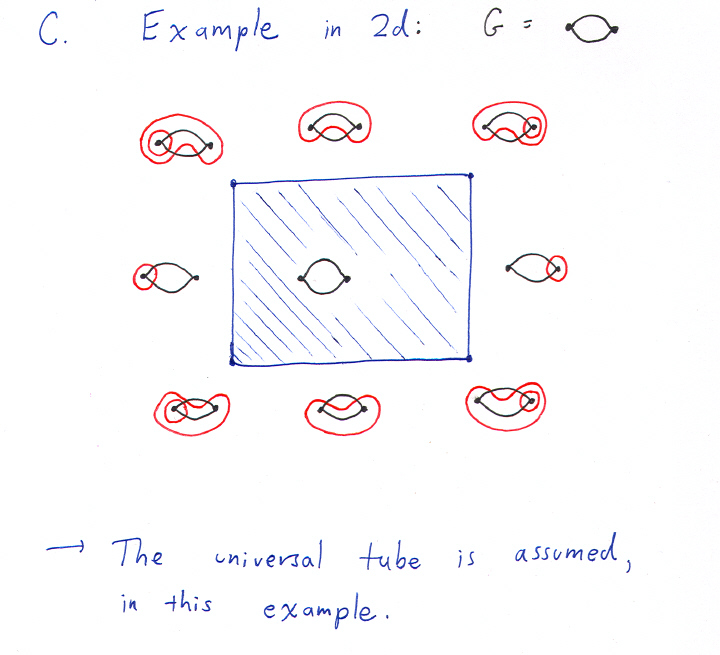 C. Example in 2d: G =
→ The universal tube is assumed,
in this example.